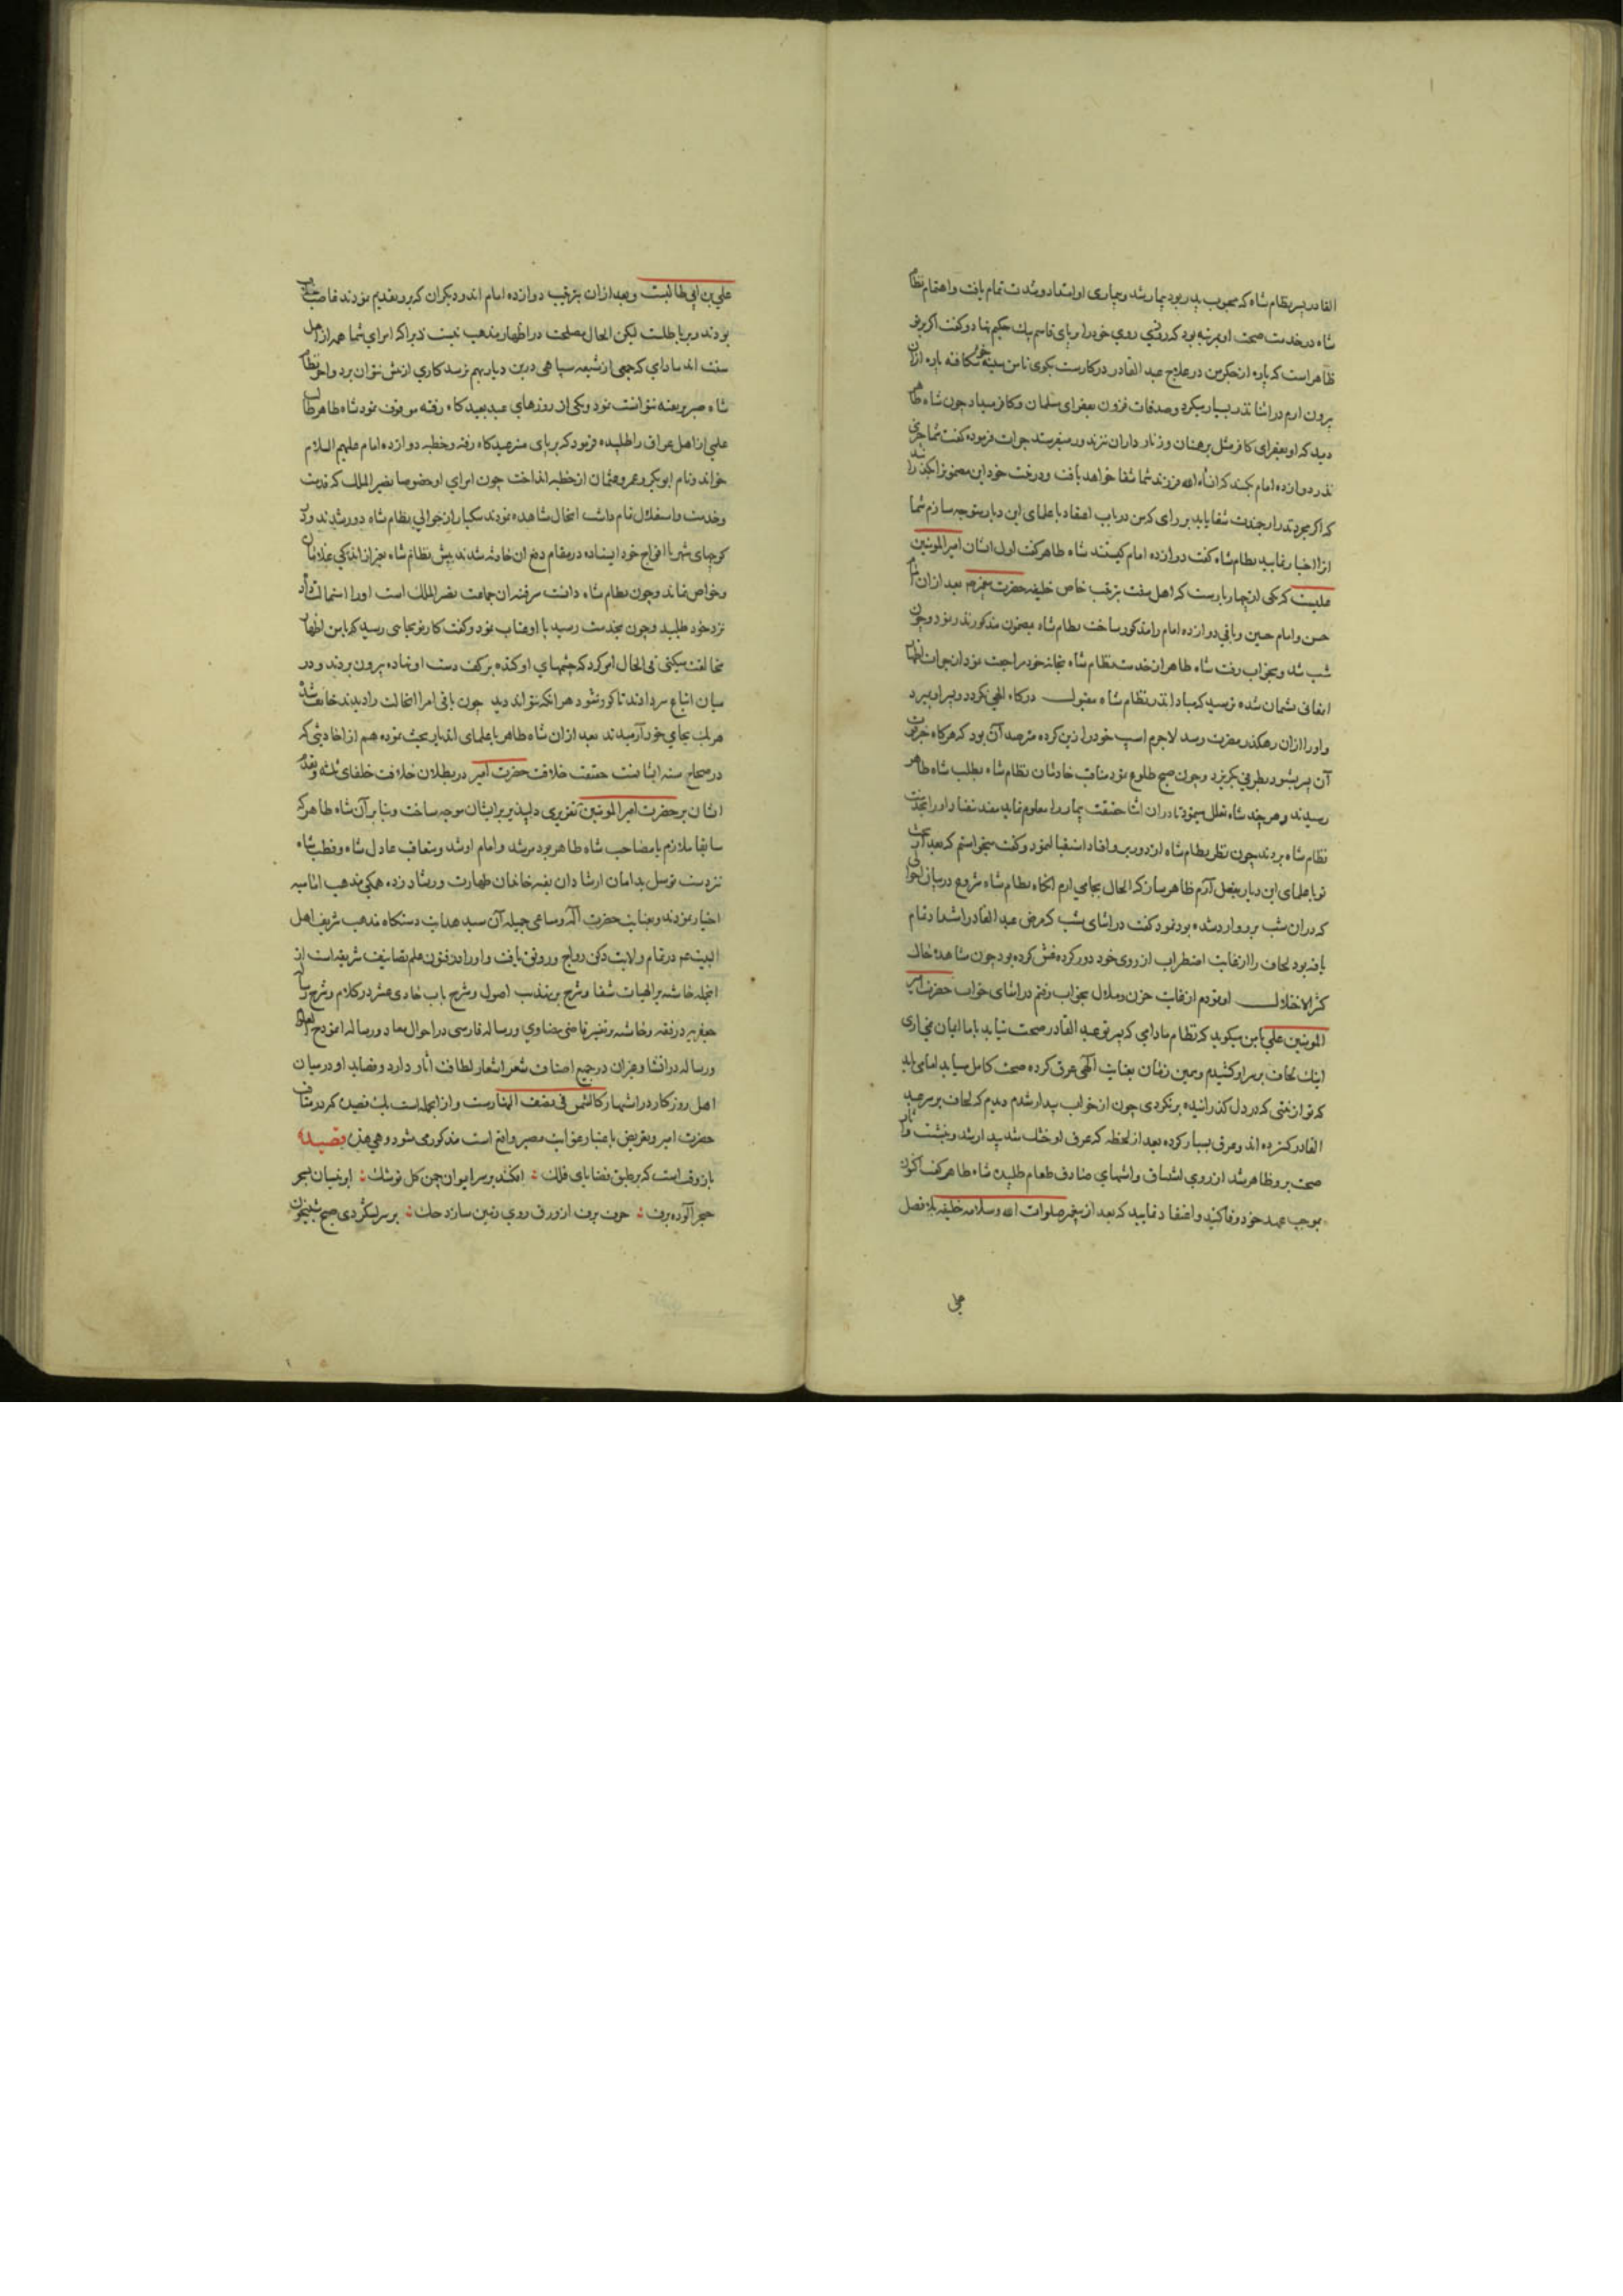 القادر پسر نظام شاه که محبوب پدر بود بیمار شد و بیماری او امتداد و شدت تمام یافت و اهتمام نظام
شاه در خدمت صحت او بمرتبه بود که روزی روی خود را بر پای قاسم بیک حکیم نهاد و گفت اگر بر تو
ظاهر است که پاره از جگر من در علاج عبد القادر در کارست بگوی تا من سینه خود شکافته پاره ازان
بیرون ارم در اثنا نذر بسیار میکرد و صدقات فزون بفقرای مسلمان و کافر میداد چون شاه طاهر
دید که او بفقرای کافر مثل برهمنان و زنار داران نیز نذور میفرستد جرات فرموده گفت شما چیزی
نذر دوازده امام بکنید که انشاء الله فرزند شما شفا خواهد یافت و درخت خود این مضمون
که اگر بمجرد نذر ارجمندت شفا یابد بر رای که من در باب اعتقاد با علمای این دیار متوجه سازم شما
انرا اختیار نمایید نظام شاه گفت دوازده امام کیستند شاه طاهر گفت اول ایشان امیر المومنین
علیست که یکی از چهار یارست که اهل سنت بترتیب خاص خلیفه حضرت پیغمبر بعد ازان امام
حسن و امام حسین و باقی دوازده امام را مذکور ساخت نظام شاه بمضمون مذکور نذر نمود و چون
شب شد و بخواب رفت شاه طاهر از خدمت نظام شاه بخانه خود مراجعت نمود ازان جرات اظهار
اتفاقی پشیمان شده ترسید که مبادا نذر نظام شاه مقبول درگاه الهی نگردد و پسر او بمیرد
و او را ازان رهگذر مضرت رسد لاجرم اسپ خود را زین کرده مترصد آن بود که هرگاه خبر فوت
آن پسر بشنود بطرفی بگریزد و چون صبح طلوع نمود متعاقب خادمان نظام شاه بطلب شاه طاهر
رسیدند و هر چند شاه تعلل مینمود تا دران اثنا حقیقت بیمار را معلوم نماید مفید نیفتاد و او را بخدمت
نظام شاه بردند چون نظر نظام شاه از دور برو افتاد استقبال نمود و گفت میخواستم که بعد از بحث
تو با علمای این دیار بفعل آرم ظاهر ساز که الحال بجای ارم انگاه نظام شاه شروع در بیان احوالی
که دران شب برو وارد شده بود نمود گفت در اثنای شب که مرض عبد القادر اشتداد تمام
یافته بود لحاف را از غایت اضطراب از روی خود دور کرده غش کرده بود چون مشاهده حال
کثیر الاختلال او نمودم از غایت حزن و ملال بخواب رفتم در اثنای خواب حضرت امیر
المومنین علی با من میگوید که نظام مادامی که پسر تو عبد القادر صحت نیابد با ما ایمان نمی اری
اینک لحاف بر سر او کشیدم و همین زمان بعنایت الهی عرق کرده صحت کامل میابد اما می باید
که تو از نیتی که در دل گذرانیده برنگردی چون از خواب بیدار شدم دیدم که لحاف بر سر عبد
القادر کشیده اند و عرق بسیار کرده بعد از لحظه که عرق او خشک شد بیدار شد و بنشست و آثار
صحت برو ظاهر شد از روی اشتهای صادق طعام طلبید شاه طاهر گفت اکنون
بموجب عهد خود وفا کنید و اعتقاد نمایید که بعد از پیغمبر صلوات الله وسلامه خلیفه بلا فصل
علی
علی بن ابی طالبست و بعد ازان بترتیب دوازده امام اند و دیگران که برو تقدیم نمودند غاصب خلافت
بودند و بر باطلند لیکن الحال مصلحت در اظهار مذهب نیست زیرا که امرای شما همه از اهل
سنت اند مادامی که جمعی از شیعه سپاهی درین دیار بهم نرسد کاری از پیش نتوان برد و اخر نظام
شاه صبر بعینه نتوانست نمود و یکی از روزهای عید بعیدگاه رفته موقوف نمود شاه طاهر طالب
علمی از اهل عراق را طلبیده فرمود که بر پای منبر عیدگاه رفته و خطبه دوازده امام علیهم السلام
خواند و نام ابوبکر و عمر و عثمان از خطبه انداخت چون امرای او خصوصا نصیر الملک که قدرت
و خدمت و استقلال تمام داشت اینحال مشاهده نمودند یکبار از حوالی نظام شاه دور شدند و در
کوچهای شهر با افواج خود ایستاده در مقام دفع ان حادثه شدند پیش نظام شاه بغیر از اندکی غلامان
و خواص نماند و چون نظام شاه دانست سر فتنه ان جماعت نصیر الملک است او را استمالت داد
نزد خود طلبید و چون بخدمت رسید با او عتاب نمود و گفت کار تو بجایی رسید که با من اظهار
مخالفت میکنی فی الحال امر کرد که چشمهای او کنده بر کف دست او نهاده بیرون بردند و در
میان اتباع سر دادند تا کور شود هر انکه نتواند دید چون باقی امرا انحالت را دیدند خایف شده
هر یک بجای خود آرمیدند بعد ازان شاه طاهر با علمای اندیار بحث نموده هم از احادیثی که
در صحاح سته ایشانست حقیقت خلافت حضرت امیر در بطلان خلافت خلفای ثلثه و تقدم
ایشان بر حضرت امیر المومنین تقریری دلپذیر برایشان موجه ساخت و بنا بر آن شاه طاهر که
سابقا ملازم یا مصاحب شاه طاهر بود مرشد و امام او شد و متعاقب عادل شاه و قطب شاه
نیز دست توسل بدامان ارشاد آن بقیه خاندان طهارت و رشاد زده همگی مذهب امامیه
اختیار نمودند و بعنایت حضرت آله و مساعی جمیله آن سید هدایت دستگاه مذهب شریف اهل
البیت در تمام ولایت دکن رواج و رونق یافت و او را در فنون علم تصانیف شریفه است از
انجمله حاشیه بر الهیات شفا و شرح بر تهذیب اصول و شرح باب حادی عشر در کلام و شرح رساله
جعفریه در فقه و حاشیه بر تفسیر قاضی بیضاوی و رساله فارسی در احوال معاد و رساله انموذج العلوم
و رساله در انشا و غیران در جمیع اصناف شعر اشعار لطافت آثار دارد و قصاید او در میان
اهل روزگار در اشتهار کالشمس فی نصف النهارست و از انجمله است یک قصیده که در مناقب
حضرت امیر و تعریض با عنبار عراق مصر واقع است مذکور می شود و هی هذه قصیده
باز وقت است که بر طبق قضایای فلک افکند بر سر ایوان چمن گل توشک ابر نیسان بسحر
حجر آلوده برف حرف برف از ورق روی زمین سازد حک بر سر لشکر دی صبح شبیخون